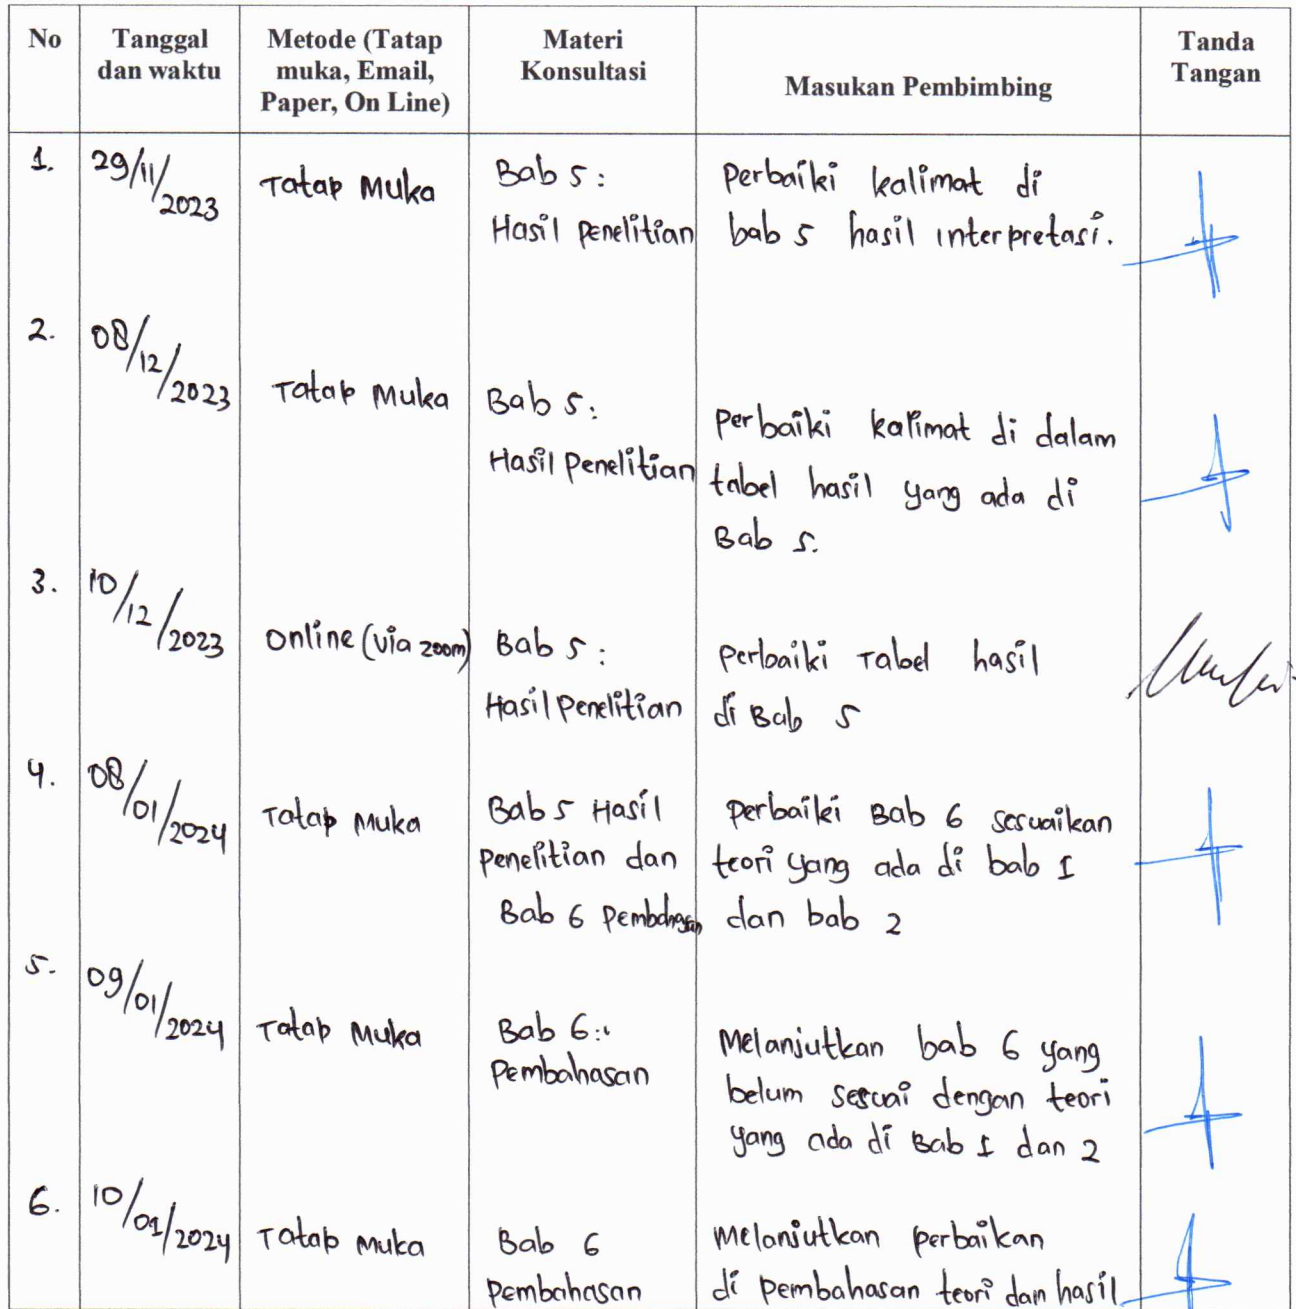 No
Tanggal
dan waktu
Metode (Tatap
muka, Email,
Paper, On Line)
Materi
Konsultasi
Masukan Pembimbing
Tanda
Tangan
1.
29/11/2023
Tatap Muka
Bab 5 :
Hasil Penelitian
Perbaiki kalimat di
bab 5 hasil interpretasi.
2.
08/12/2023
Tatap Muka
Bab 5 :
Hasil Penelitian
Perbaiki kalimat di dalam
tabel hasil yang ada di
Bab 5.
3.
10/12/2023
Online (via zoom)
Bab 5 :
Hasil Penelitian
Perbaiki Tabel hasil
di Bab 5
4.
08/01/2024
Tatap Muka
Bab 5 Hasil
Penelitian dan
Bab 6 Pembahasan
Perbaiki Bab 6 sesuaikan
teori yang ada di bab 1
dan bab 2
5.
09/01/2024
Tatap Muka
Bab 6 :
Pembahasan
Melanjutkan bab 6 yang
belum sesuai dengan teori
yang ada di Bab 1 dan 2
6.
10/01/2024
Tatap Muka
Bab 6
Pembahasan
Melanjutkan perbaikan
di pembahasan teori dan hasil